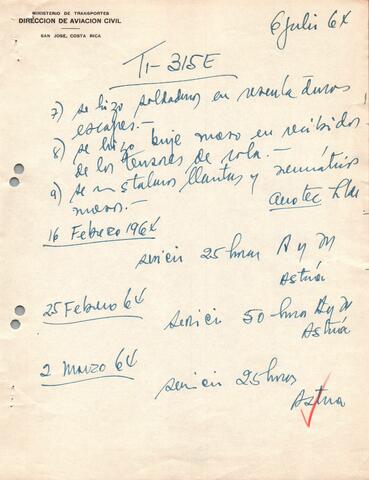 MINISTERIO DE TRANSPORTES
DIRECCION DE AVIACION CIVIL
SAN JOSE, COSTA RICA
6 Julio 64
TI-315E
7) se hizo soldaduras en
escapes.—
8) se hizo buje nuevo en
de los tensores de cola.—
9) se instalaron llantas y neumáticos
nuevos.— Aerotec Ltda
16 Febrero 1964
servicio 25 horas A y M
Astúa
25 Febrero 64
servicio 50 horas A y M
Astúa
2 Marzo 64
servicio 25 horas
Astúa